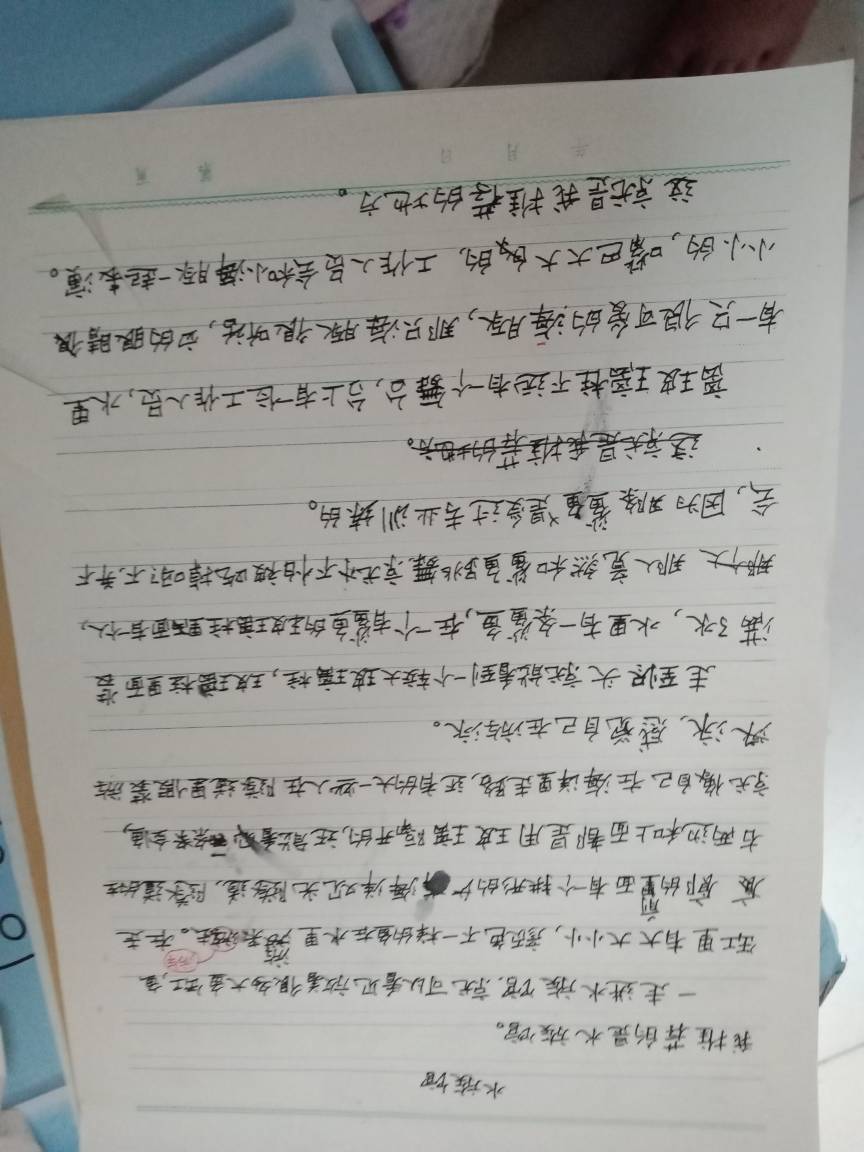 水族馆
我推荐的是水族馆。
一走进水族馆,就可以看见放着很多大鱼缸,鱼
缸里有大大小小,颜色不一样的鱼在水里游来游去。在走
廊的前面有一个拱形的海洋观光隧道,隧道的左
右两边和上面都是用玻璃隔开的,还能看见一条条鱼,
就像自己在海洋里走路,还有的大一些人在隧道里假装游
泳,感觉自己在游泳。
走到尽头就能看到一个较大玻璃柱,玻璃柱里面装
满了水,水里有一条鲨鱼,在一个有鲨鱼的玻璃柱里面有个人,
那人竟然和鲨鱼跳舞,就不怕被吃掉吗?不,并不
会,因为那条鲨鱼是受过专业训练的。
这就是我推荐的地方。
离玻璃柱不远有一个舞台,台上有一位工作人员,水里
有一只很可爱的海豚,那只海豚很听话,它的眼睛很
小小的,嘴巴大大的,工作人员会和小海豚一起表演。
这就是我推荐的地方。
年 月 日 第 页